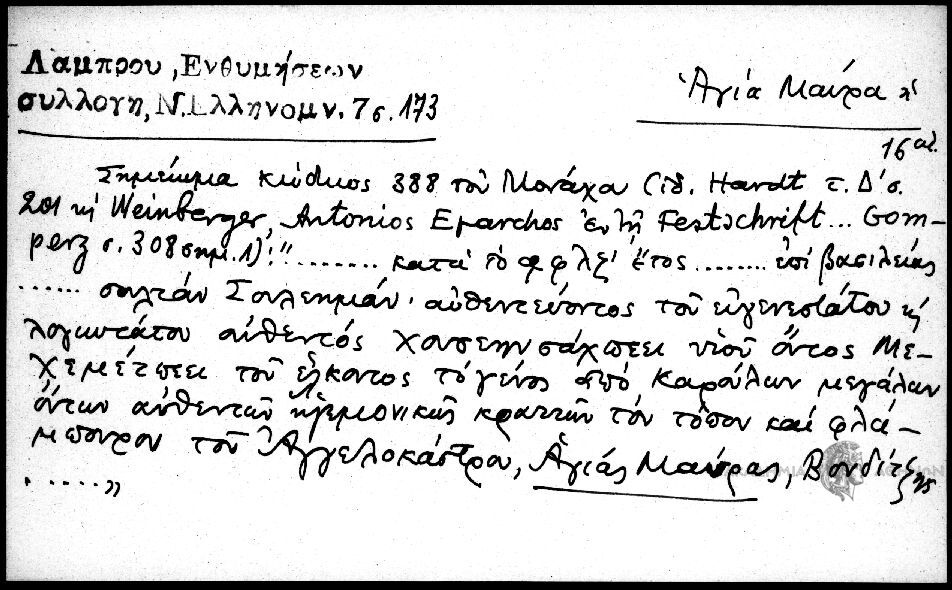 Λάμπρου, Ενθυμήσεων
συλλογη, Ν. Ελληνομν. 7 σ. 173
Ἁγία Μαύρα
16 αἰ.
Σημείωμα κώδικος 388 τοῦ Μονάχου (ἰδ. Hardt τ. Δ' σ.
201 κἡ Weinberger, Antonios Eparchos ἐν τῇ Festschrift... Gom-
perz σ. 308 σημ. 1): "........ κατὰ τὸ ͵αφλξ' ἔτος ........ ἐπὶ βασιλείας
...... σουλτάν Σουλεημάν· αὐθεντεύοντος τοῦ εὐγενεστάτου κὴ
λογιωτάτου αὐθεντός χουσεην σάχπεει υἱοῦ ὄντος Με-
χεμέτπεει τοῦ ἕλκοντος τὸ γένος ἀπό Καρούλων μεγάλων
ὄντων αὐθεντῶν κὴ ἡγεμονικῶς κρατῶν τόν τόπον καί φλά-
μπουρον τοῦ Ἀγγελοκάστρου, Ἁγιάς Μαύρας, Βονδίτζης
.....„